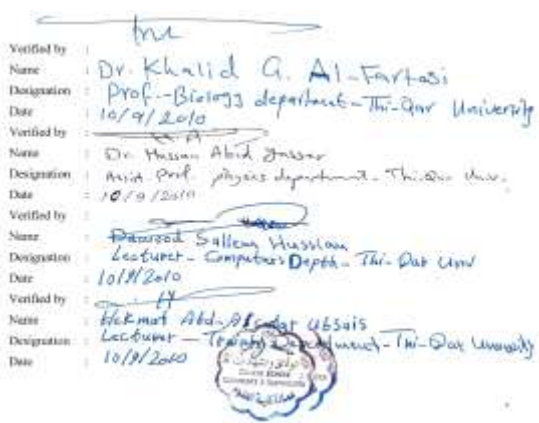 Verified by :
Name : Dr. Khalid G. Al-Fartosi
Designation : Prof.-Biology department-Thi-Qar University
Date : 10/9/2010
Verified by :
Name : Dr. Hassan Abid Yasser
Designation : Assist. Prof. physics department-Thi-Qar Univ.
Date : 10/9/2010
Verified by :
Name : Dawood Sallem Hussian
Designation : Lecturer-Computers Depth-Thi-Qar Univ
Date : 10/9/2010
Verified by :
Name : Hekmat Abd-
Designation : Lecturer-
Department-Thi-Qar University
Date : 10/9/2010